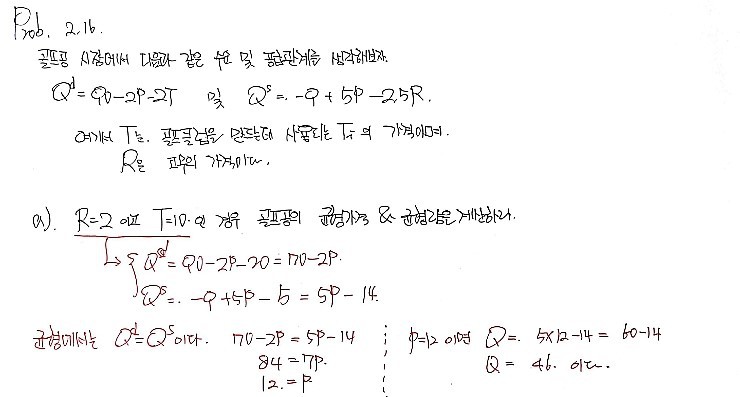 Prob. 2.16.
골프공 시장에서 다음과 같은 수요 및 공급관계를 생각해보자.
Q^d = 90-2P-2T 및 Q^s = -9+5P-2.5R.
여기서 T는 골프클럽을 만드는데 사용되는 Ti의 가격이며.
R은 고무의 가격이다.
a). R=2 이고 T=10. 인 경우 골프공의 균형가격 & 균형량을 계산하라.
↳ { Q^d = 90-2P-20 = 70-2P.
Q^s = -9+5P-5 = 5P-14.
균형에서는 Q^d=Q^s이다. 70-2P = 5P-14
84 = 7P.
12. = P
P=12 이면 Q = 5×12-14 = 60-14
Q = 46. 이다.